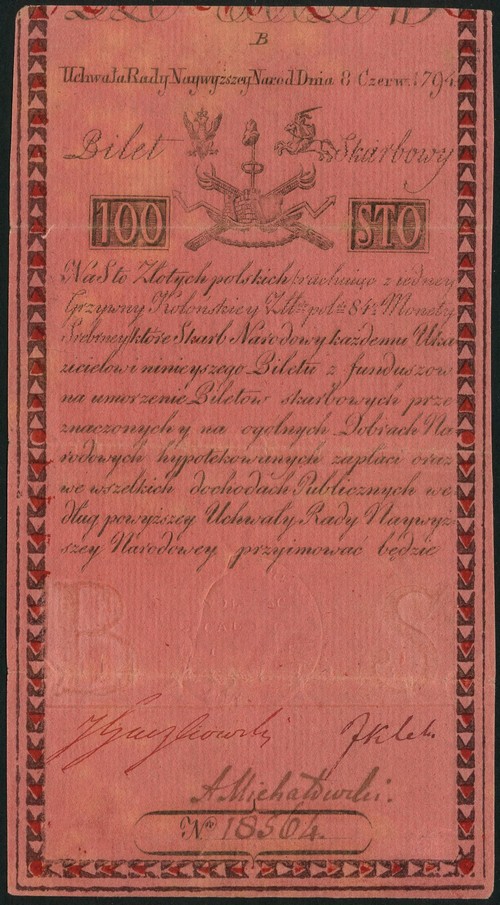 B
Uchwała Rady Naywyższey Narod Dnia 8 Czerw. 1794
Bilet Skarbowy
100 STO
Na Sto Złotych polskich rachuiąc z iedney
Grzywny Kolońskiey Złt: pol: 84½ Monety
Srebrney które Skarb Narodowy każdemu Uka
zicielowi ninieyszego Biletu z funduszow
na umorzenie Biletow skarbowych prze
znaczonych y na ogólnych Dobrach Na
rodowych hypotekowanych zapłaci oraz
we wszelkich dochodach Publicznych we
dług powyższey Uchwały Rady Naywyż
szey Narodowey przyimować będzie
B S
A. Michałowski.
Nro 18564.